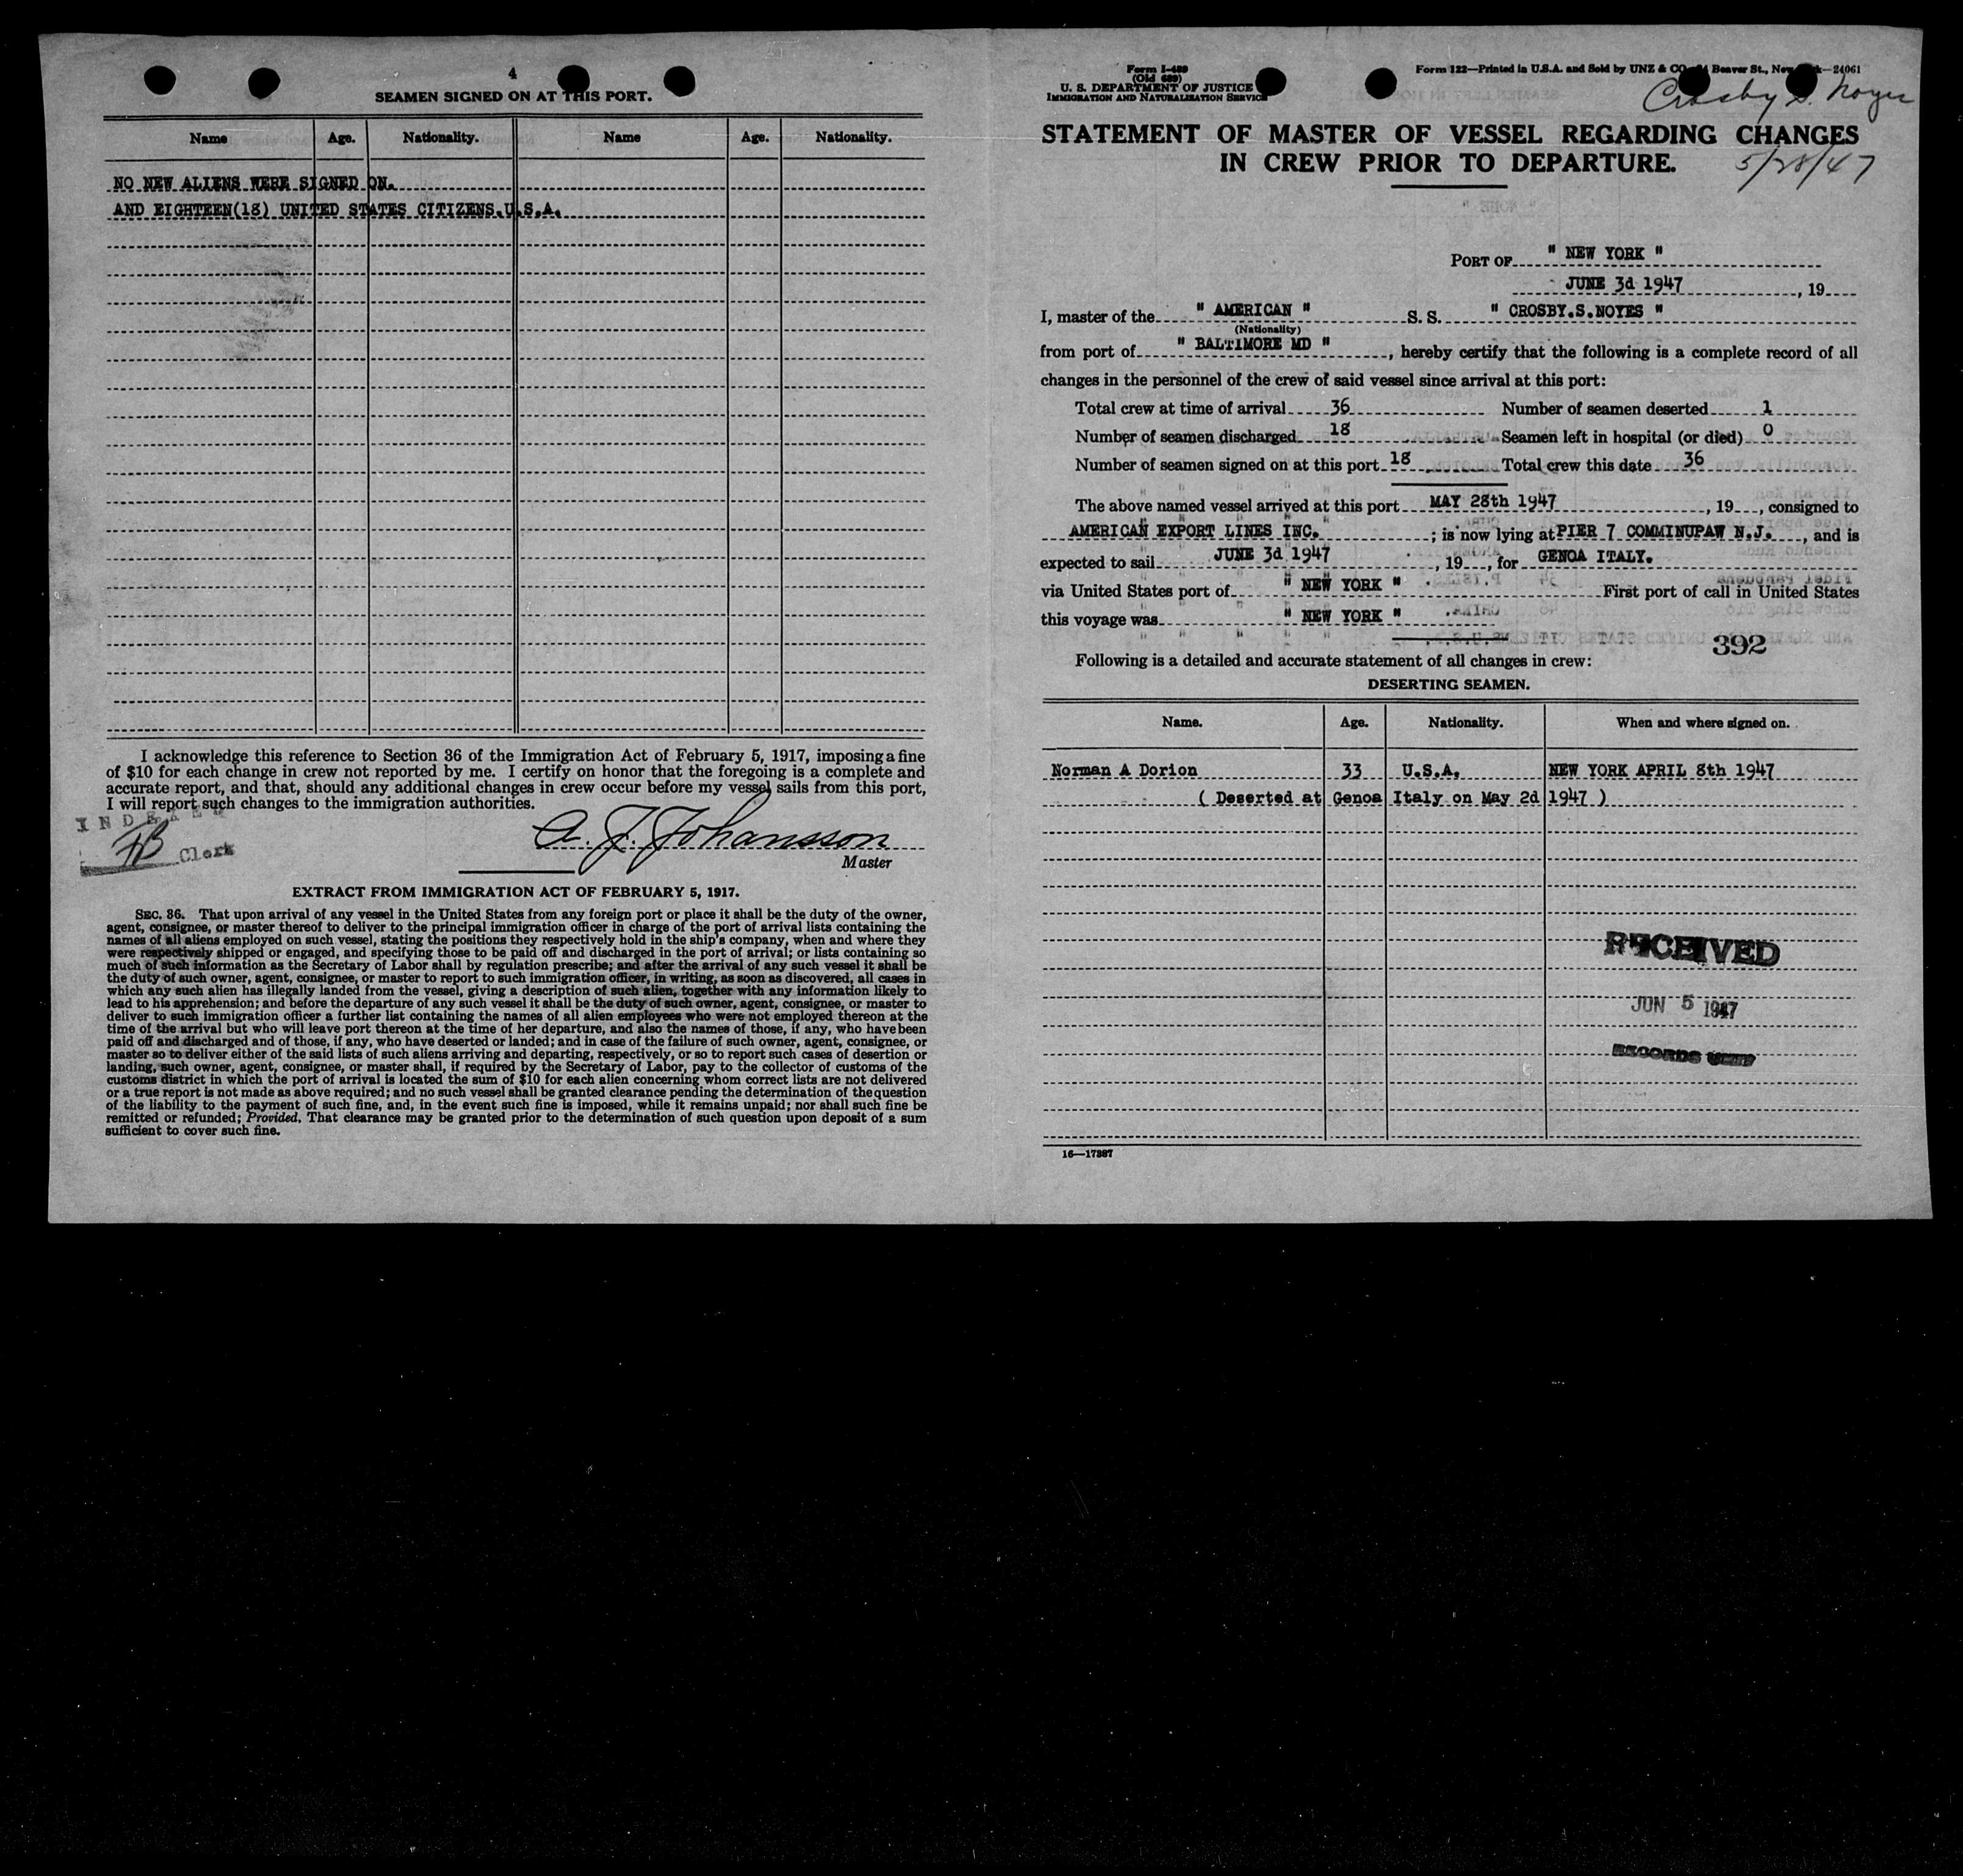 4
SEAMEN SIGNED ON AT THIS PORT.
Name Age. Nationality. Name Age. Nationality.
NO NEW ALIENS WERE SIGNED ON.
AND EIGHTEEN(18) UNITED STATES CITIZENS.U.S.A.
I acknowledge this reference to Section 36 of the Immigration Act of February 5, 1917, imposing a fine
of $10 for each change in crew not reported by me. I certify on honor that the foregoing is a complete and
accurate report, and that, should any additional changes in crew occur before my vessel sails from this port,
I will report such changes to the immigration authorities.
INDEXED
Clerk
A. J. Johansson
Master
EXTRACT FROM IMMIGRATION ACT OF FEBRUARY 5, 1917.
SEC. 36. That upon arrival of any vessel in the United States from any foreign port or place it shall be the duty of the owner,
agent, consignee, or master thereof to deliver to the principal immigration officer in charge of the port of arrival lists containing the
names of all aliens employed on such vessel, stating the positions they respectively hold in the ship's company, when and where they
were respectively shipped or engaged, and specifying those to be paid off and discharged in the port of arrival; or lists containing so
much of such information as the Secretary of Labor shall by regulation prescribe; and after the arrival of any such vessel it shall be
the duty of such owner, agent, consignee, or master to report to such immigration officer, in writing, as soon as discovered, all cases in
which any such alien has illegally landed from the vessel, giving a description of such alien, together with any information likely to
lead to his apprehension; and before the departure of any such vessel it shall be the duty of such owner, agent, consignee, or master to
deliver to such immigration officer a further list containing the names of all alien employees who were not employed thereon at the
time of the arrival but who will leave port thereon at the time of her departure, and also the names of those, if any, who have been
paid off and discharged and of those, if any, who have deserted or landed; and in case of the failure of such owner, agent, consignee, or
master so to deliver either of the said lists of such aliens arriving and departing, respectively, or so to report such cases of desertion or
landing, such owner, agent, consignee, or master shall, if required by the Secretary of Labor, pay to the collector of customs of the
customs district in which the port of arrival is located the sum of $10 for each alien concerning whom correct lists are not delivered
or a true report is not made as above required; and no such vessel shall be granted clearance pending the determination of the question
of the liability to the payment of such fine, and, in the event such fine is imposed, while it remains unpaid; nor shall such fine be
remitted or refunded; Provided, That clearance may be granted prior to the determination of such question upon deposit of a sum
sufficient to cover such fine.
Form I-489
(Old 689)
U. S. DEPARTMENT OF JUSTICE
IMMIGRATION AND NATURALIZATION SERVICE
Form 122—Printed in U.S.A. and Sold by UNZ & CO. Beaver St., New —24061
Crosby S. Noyes
STATEMENT OF MASTER OF VESSEL REGARDING CHANGES
IN CREW PRIOR TO DEPARTURE.
5/28/47
PORT OF " NEW YORK "
JUNE 3d 1947, 19
I, master of the " AMERICAN " S. S. " CROSBY.S.NOYES "
(Nationality)
from port of " BALTIMORE MD ", hereby certify that the following is a complete record of all
changes in the personnel of the crew of said vessel since arrival at this port:
Total crew at time of arrival 36 Number of seamen deserted 1
Number of seamen discharged 18 Seamen left in hospital (or died) 0
Number of seamen signed on at this port 18 Total crew this date 36
The above named vessel arrived at this port MAY 28th 1947, 19, consigned to
AMERICAN EXPORT LINES INC. ; is now lying at PIER 7 COMMINUPAW N.J. , and is
expected to sail JUNE 3d 1947, 19, for GENOA ITALY.
via United States port of " NEW YORK " First port of call in United States
this voyage was " NEW YORK "
392
Following is a detailed and accurate statement of all changes in crew:
DESERTING SEAMEN.
Name. Age. Nationality. When and where signed on.
Norman A Dorion 33 U.S.A. NEW YORK APRIL 8th 1947
( Deserted at Genoa Italy on May 2d 1947 )
RECEIVED
JUN 5 1947
RECORDS UNIT
16—17387